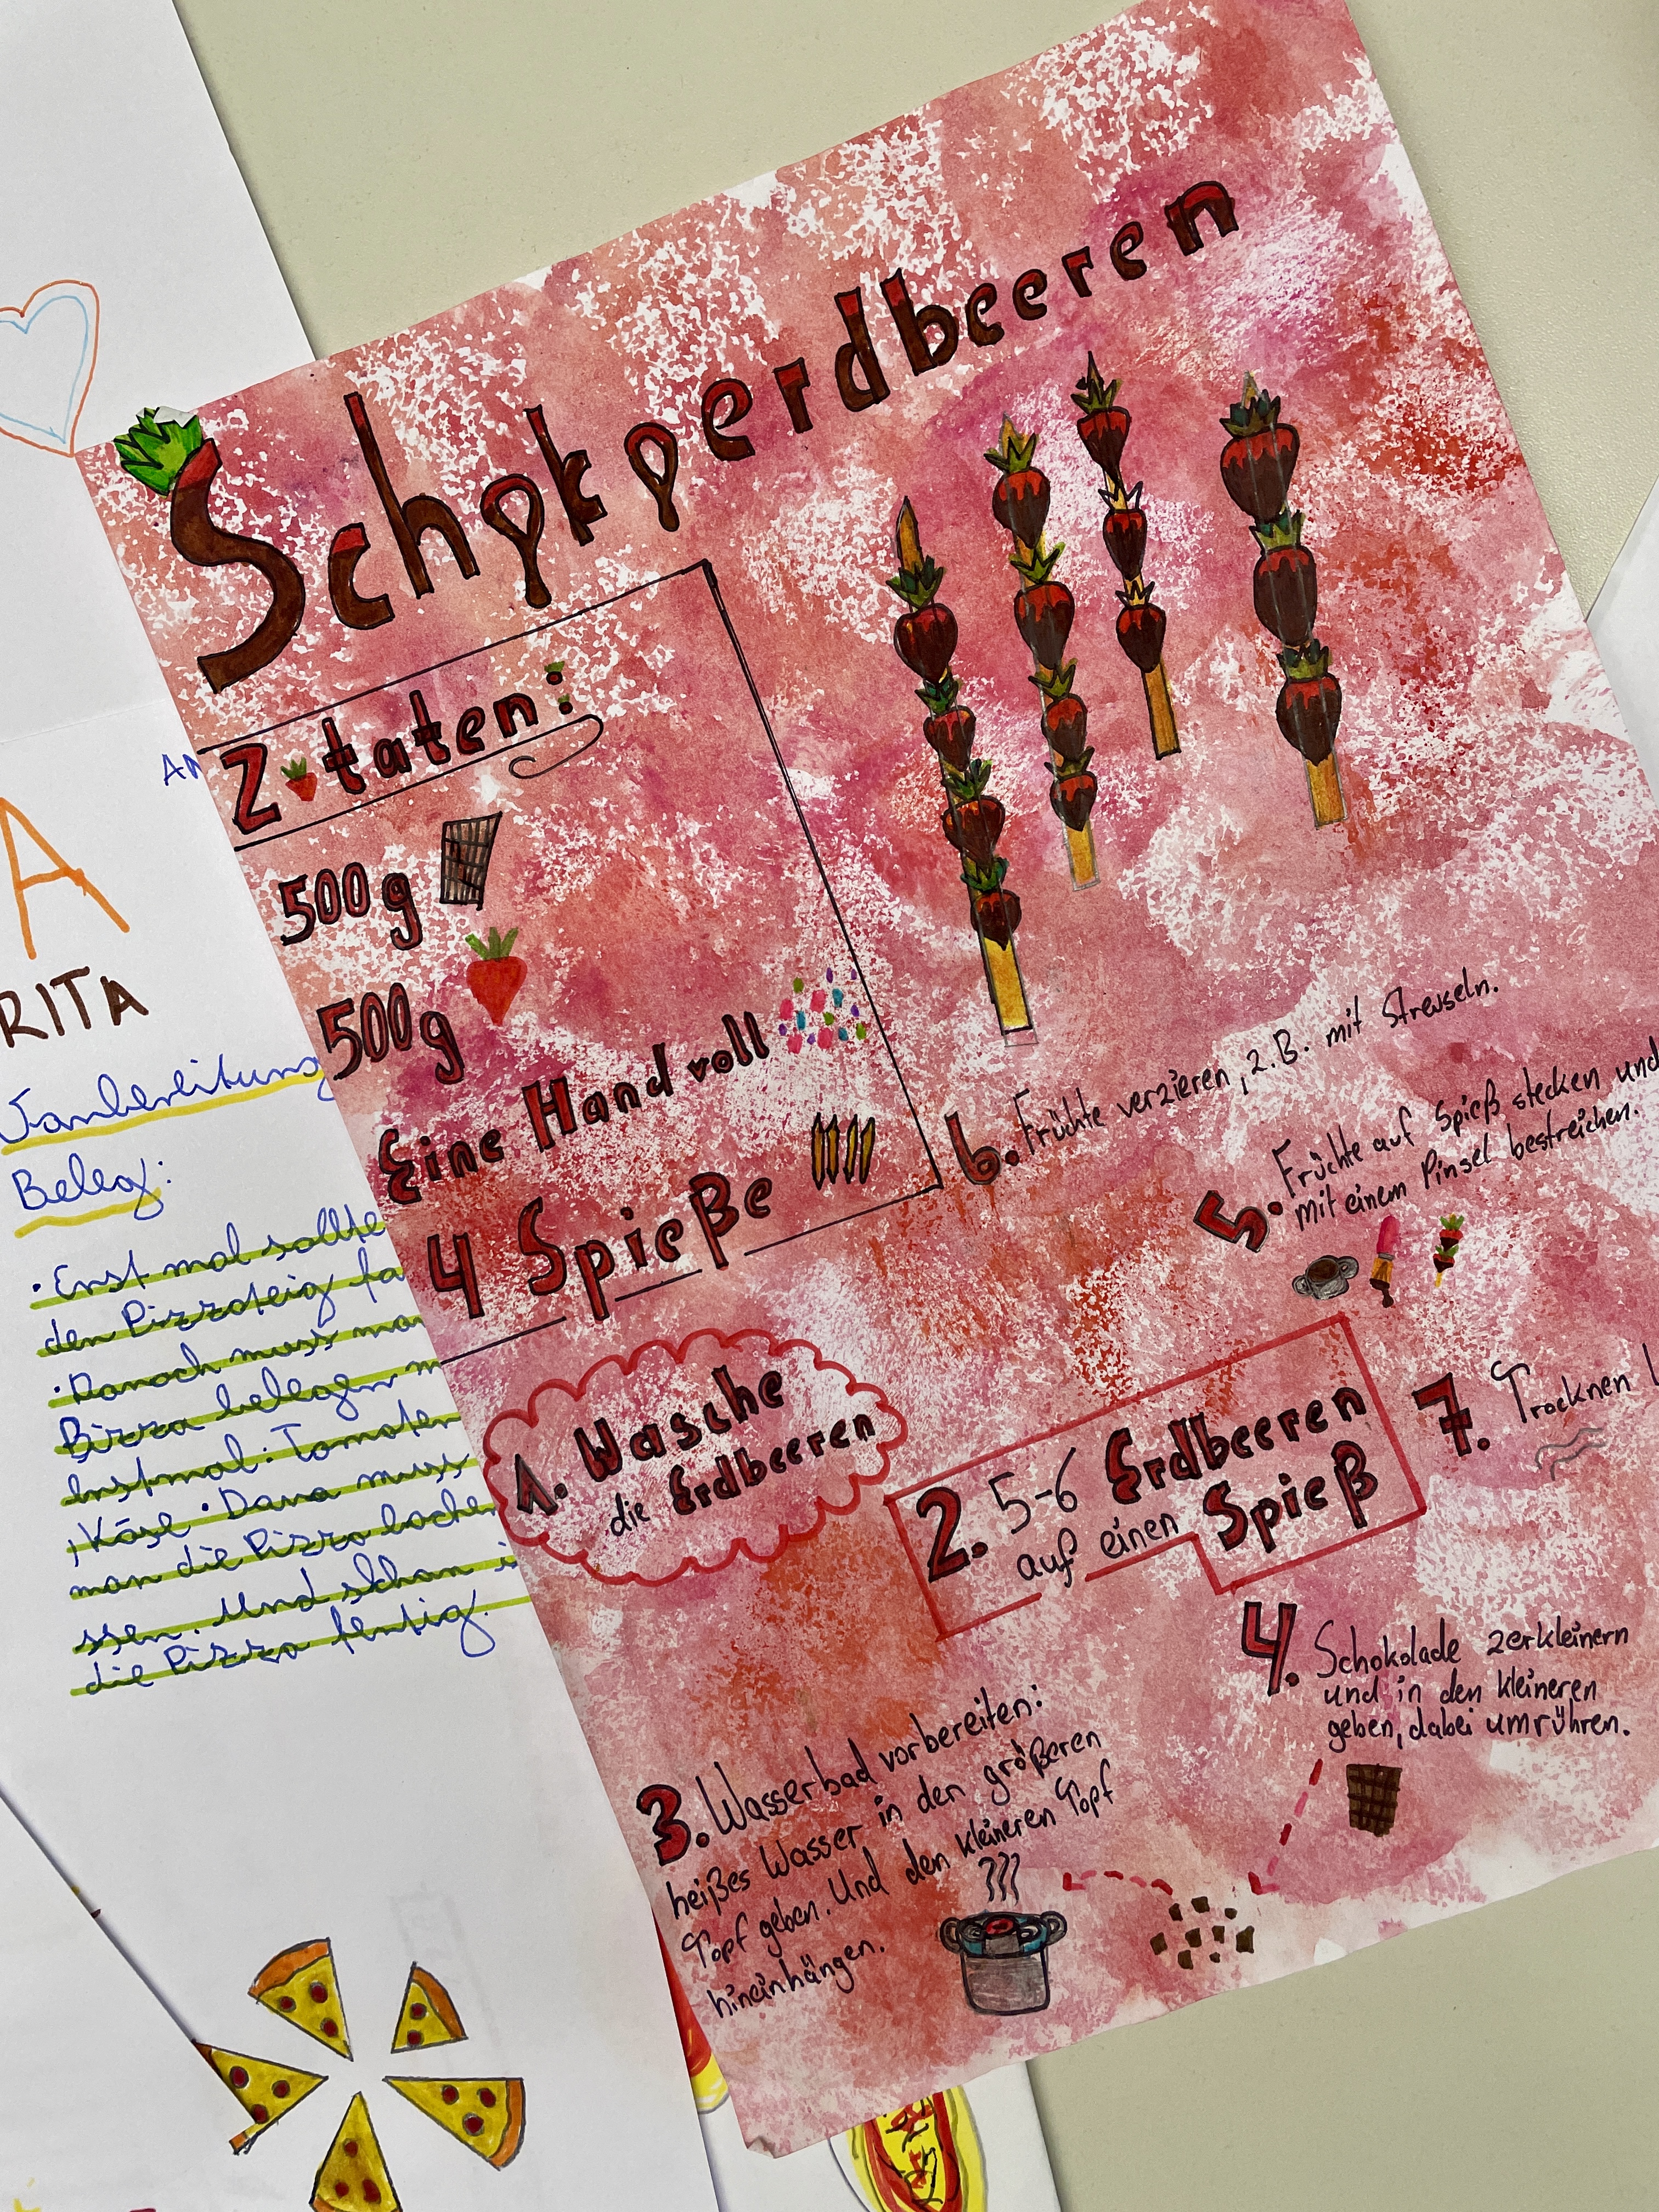 Schokoerdbeeren
Zutaten:
500g
500g
Eine Hand voll
4 Spieße
1. Wasche
die Erdbeeren
2. 5-6 Erdbeeren
auf einen Spieß
3. Wasserbad vorbereiten:
heißes Wasser in den größeren
Topf geben. Und den kleineren Topf
hineinhängen.
4. Schokolade zerkleinern
und in den kleineren
geben, dabei umrühren.
5. Früchte auf Spieß stecken und
mit einem Pinsel bestreichen.
6. Früchte verzieren, z.B. mit Streuseln.
7. Trocknen
A
RITA
Beleg:
· Erst mal sollte
den Pizzateig
· Danach muss man
Pizza belegen
erstmal: Tomaten
, Käse · Dana muss
man die Pizza backen
ssen. Und schan
die Pizza fertig.